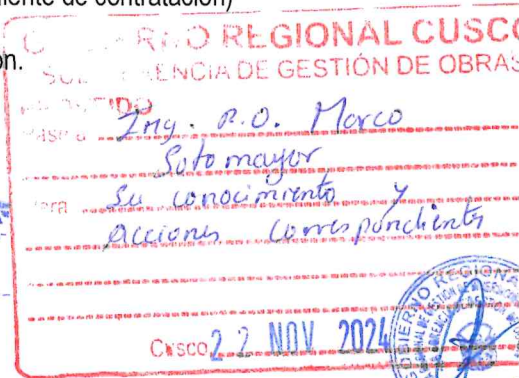 ente de contratación)
ón.
REGIONAL CUSCO
GERENCIA DE GESTIÓN DE OBRAS
Ing. R.O. Marco
Sotomayor
Su conocimiento y
acciones correspondientes
Cusco 22 NOV 2024